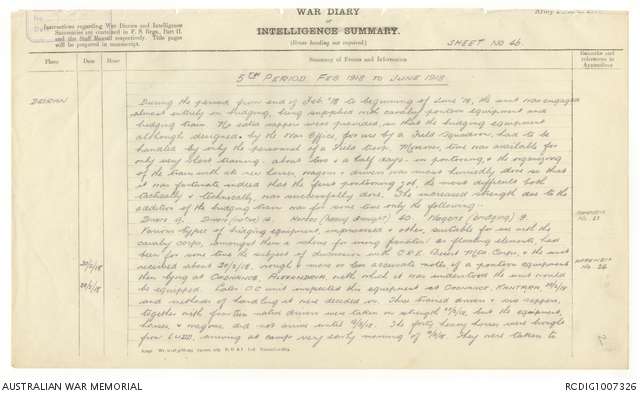 WAR DIARY
or
INTELLIGENCE SUMMARY.
(Erase heading not required)
Army
Instructions regarding War Diaries and Intelligence
Summaries are contained in F. S. Regs., Part II.
and the Staff Manual respectively. Title pages
will be prepared in manuscript.
SHEET NO 46.
Place Date Hour Summary of Events and Information Remarks and references to Appendices
5TH PERIOD FEB 1918 TO JUNE 1918
DEIRAN
During the period from end of Feb '18 to beginning of June '18, the unit was engaged
almost entirely on bridging, being supplied with cavalry pontoon equipment and
bridging train. No extra sappers were provided, so that the bridging equipment
although designed by the War Office, for use by a Field Squadron, had to be
handled by only the personnel of a Field Troop. Moreover, time was available for
only very short training, about two & a half days in pontooning, & the organizing
of the train with its new horses, wagons & drivers was most hurriedly done so that
it was fortunate indeed that the first pontooning job, the most difficult both
tactically & technically, was successfully done. The increased strength due to the
addition of the bridging train was for some time only the following:-
Drivers 9, Drivers (native) 12. Horses (heavy draught) 40 Wagons (bridging) 9.
Various types of bridging equipment, improvised & other, suitable for use with the
cavalry corps, amongst them a scheme for using as floating elements, had
been for some time the subject of discussion with C.R.E. Desert Mtd Corps, & the unit
received about 20/2/18, rough & more or less accurate notes of a pontoon equipment
then lying at ALEXANDRIA, with which it was understood the unit would
be equipped. Later O.C. unit inspected this equipment at KANTARA,
and methods of handling it were decided on. Nine trained drivers & sappers,
together with native drivers were taken on strength but the equipment,
horses & wagons did not arrive until The forty heavy horses were brought
from LUDD, arriving at camp very early morning of They were taken to
APPENDIX
No. 23
APPENDIX
No 24
AUSTRALIAN WAR MEMORIAL
RCDIG1007326